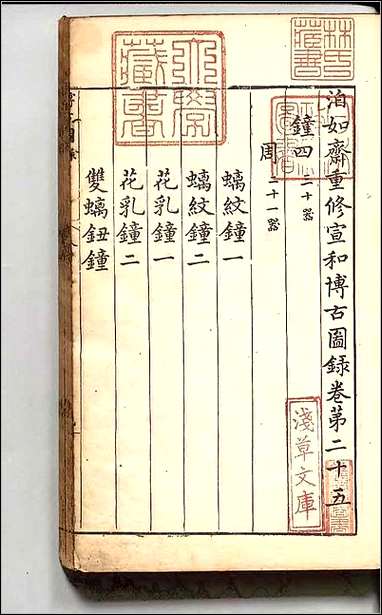 泊如齋重修宣和博古圖錄卷第二十五
鐘四二十一器
周二十一器
螭紋鐘一
螭紋鐘二
花乳鐘一
花乳鐘二
雙螭鈕鐘
林氏藏書
大學藏書
淺草文庫